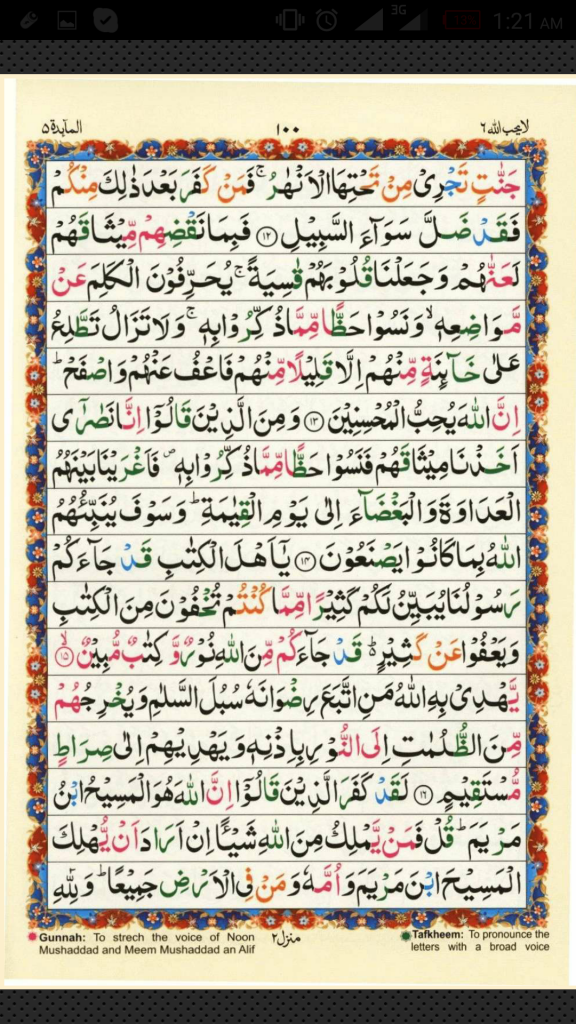 1:21 AM
3G
لا يحب الله ٦
١٠٠
المآبدة ٥
جَنّٰتٍ تَجْرِىْ مِنْ تَحْتِهَا الْاَنْهٰرُ ۚ فَمَنْ كَفَرَ بَعْدَ ذٰلِكَ مِنْكُمْ
فَقَدْ ضَلَّ سَوَآءَ السَّبِيْلِ ﴿۱۲﴾ فَبِمَا نَقْضِهِمْ مِّيْثَاقَهُمْ
لَعَنّٰهُمْ وَجَعَلْنَا قُلُوْبَهُمْ قٰسِيَةً ۚ يُحَرِّفُوْنَ الْكَلِمَ عَنْ
مَّوَاضِعِهٖ ۙ وَنَسُوْا حَظًّا مِّمَّا ذُكِّرُوْا بِهٖ ۚ وَلَا تَزَالُ تَطَّلِعُ
عَلٰى خَآئِنَةٍ مِّنْهُمْ اِلَّا قَلِيْلًا مِّنْهُمْ فَاعْفُ عَنْهُمْ وَاصْفَحْ ؕ
اِنَّ اللّٰهَ يُحِبُّ الْمُحْسِنِيْنَ ﴿۱۳﴾ وَمِنَ الَّذِيْنَ قَالُوْۤا اِنَّا نَصٰرٰٓى
اَخَذْنَا مِيْثَاقَهُمْ فَنَسُوْا حَظًّا مِّمَّا ذُكِّرُوْا بِهٖ ۪ فَاَغْرَيْنَا بَيْنَهُمُ
الْعَدَاوَةَ وَالْبَغْضَآءَ اِلٰى يَوْمِ الْقِيٰمَةِ ؕ وَسَوْفَ يُنَبِّئُهُمُ
اللّٰهُ بِمَا كَانُوْا يَصْنَعُوْنَ ﴿۱۴﴾ يٰۤاَهْلَ الْكِتٰبِ قَدْ جَآءَكُمْ
رَسُوْلُنَا يُبَيِّنُ لَكُمْ كَثِيْرًا مِّمَّا كُنْتُمْ تُخْفُوْنَ مِنَ الْكِتٰبِ
وَيَعْفُوْا عَنْ كَثِيْرٍ ؕ قَدْ جَآءَكُمْ مِّنَ اللّٰهِ نُوْرٌ وَّكِتٰبٌ مُّبِيْنٌ ﴿۱۵﴾
يَّهْدِىْ بِهِ اللّٰهُ مَنِ اتَّبَعَ رِضْوَانَهٗ سُبُلَ السَّلٰمِ وَيُخْرِجُهُمْ
مِّنَ الظُّلُمٰتِ اِلَى النُّوْرِ بِاِذْنِهٖ وَيَهْدِيْهِمْ اِلٰى صِرَاطٍ
مُّسْتَقِيْمٍ ﴿۱۶﴾ لَقَدْ كَفَرَ الَّذِيْنَ قَالُوْۤا اِنَّ اللّٰهَ هُوَ الْمَسِيْحُ ابْنُ
مَرْيَمَ ؕ قُلْ فَمَنْ يَّمْلِكُ مِنَ اللّٰهِ شَيْـًٔا اِنْ اَرَادَ اَنْ يُّهْلِكَ
الْمَسِيْحَ ابْنَ مَرْيَمَ وَاُمَّهٗ وَمَنْ فِى الْاَرْضِ جَمِيْعًا ؕ وَلِلّٰهِ
منزل ٢
Gunnah: To strech the voice of Noon
Mushaddad and Meem Mushaddad an Alif
Tafkheem: To pronounce the
letters with a broad voice